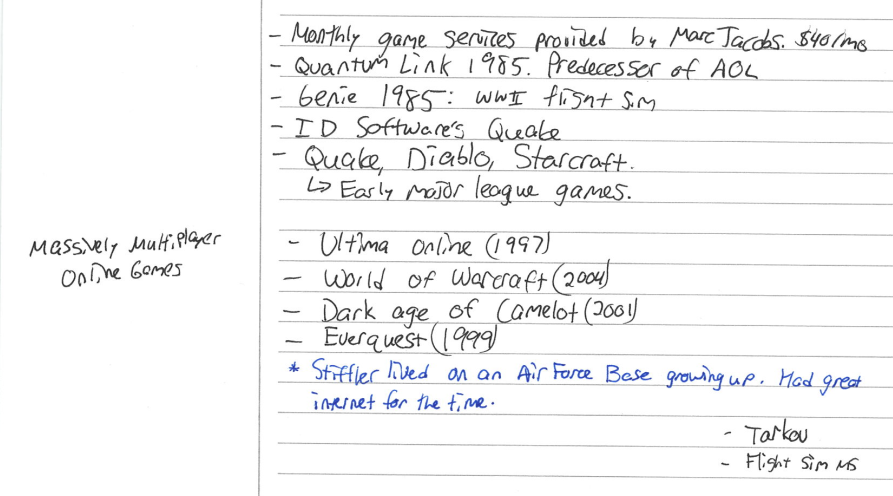 - Monthly game services provided by Marc Jacobs. $40/mo
- Quantum Link 1985. Predecessor of AOL
- Genie 1985: WWII flight sim
- ID Software's Quake
- Quake, Diablo, Starcraft.
↳ Early major league games.
Massively Multiplayer
Online Games
- Ultima online (1997)
- World of Warcraft (2004)
- Dark age of Camelot (2001)
- Everquest (1999)
* Stiffler lived on an Air Force Base growing up. Had great
internet for the time.
- Tarkov
- Flight Sim MS